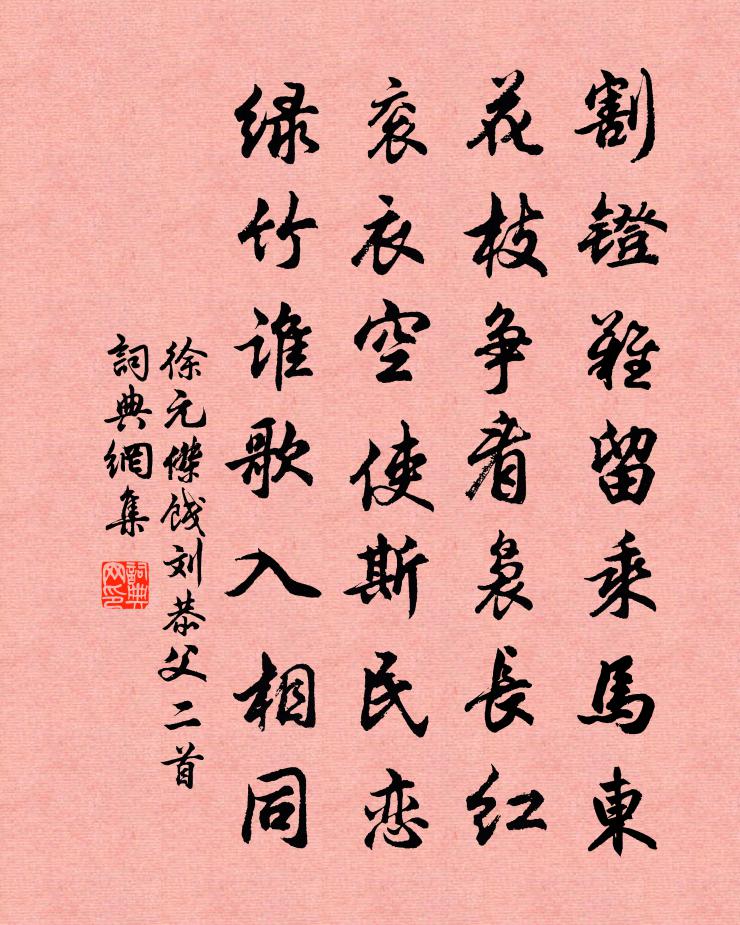 割鐙難留乘馬東
花枝争看袅長红
衮衣空使斯民恋
绿竹谁歌入相同
徐元傑饯刘恭父二首
詞典網集
詞典网印